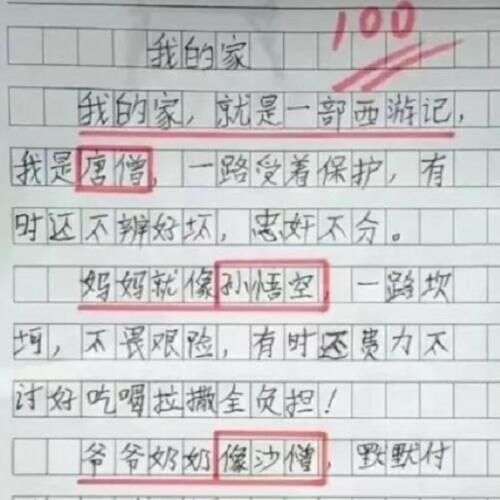 100
我的家
我的家，就是一部西游记，
我是唐僧，一路受着保护，有
时还不辨好坏，忠奸不分。
妈妈就像孙悟空，一路坎
坷，不畏艰险，有时还费力不
讨好吃喝拉撒全负担！
爷爷奶奶像沙僧，默默付